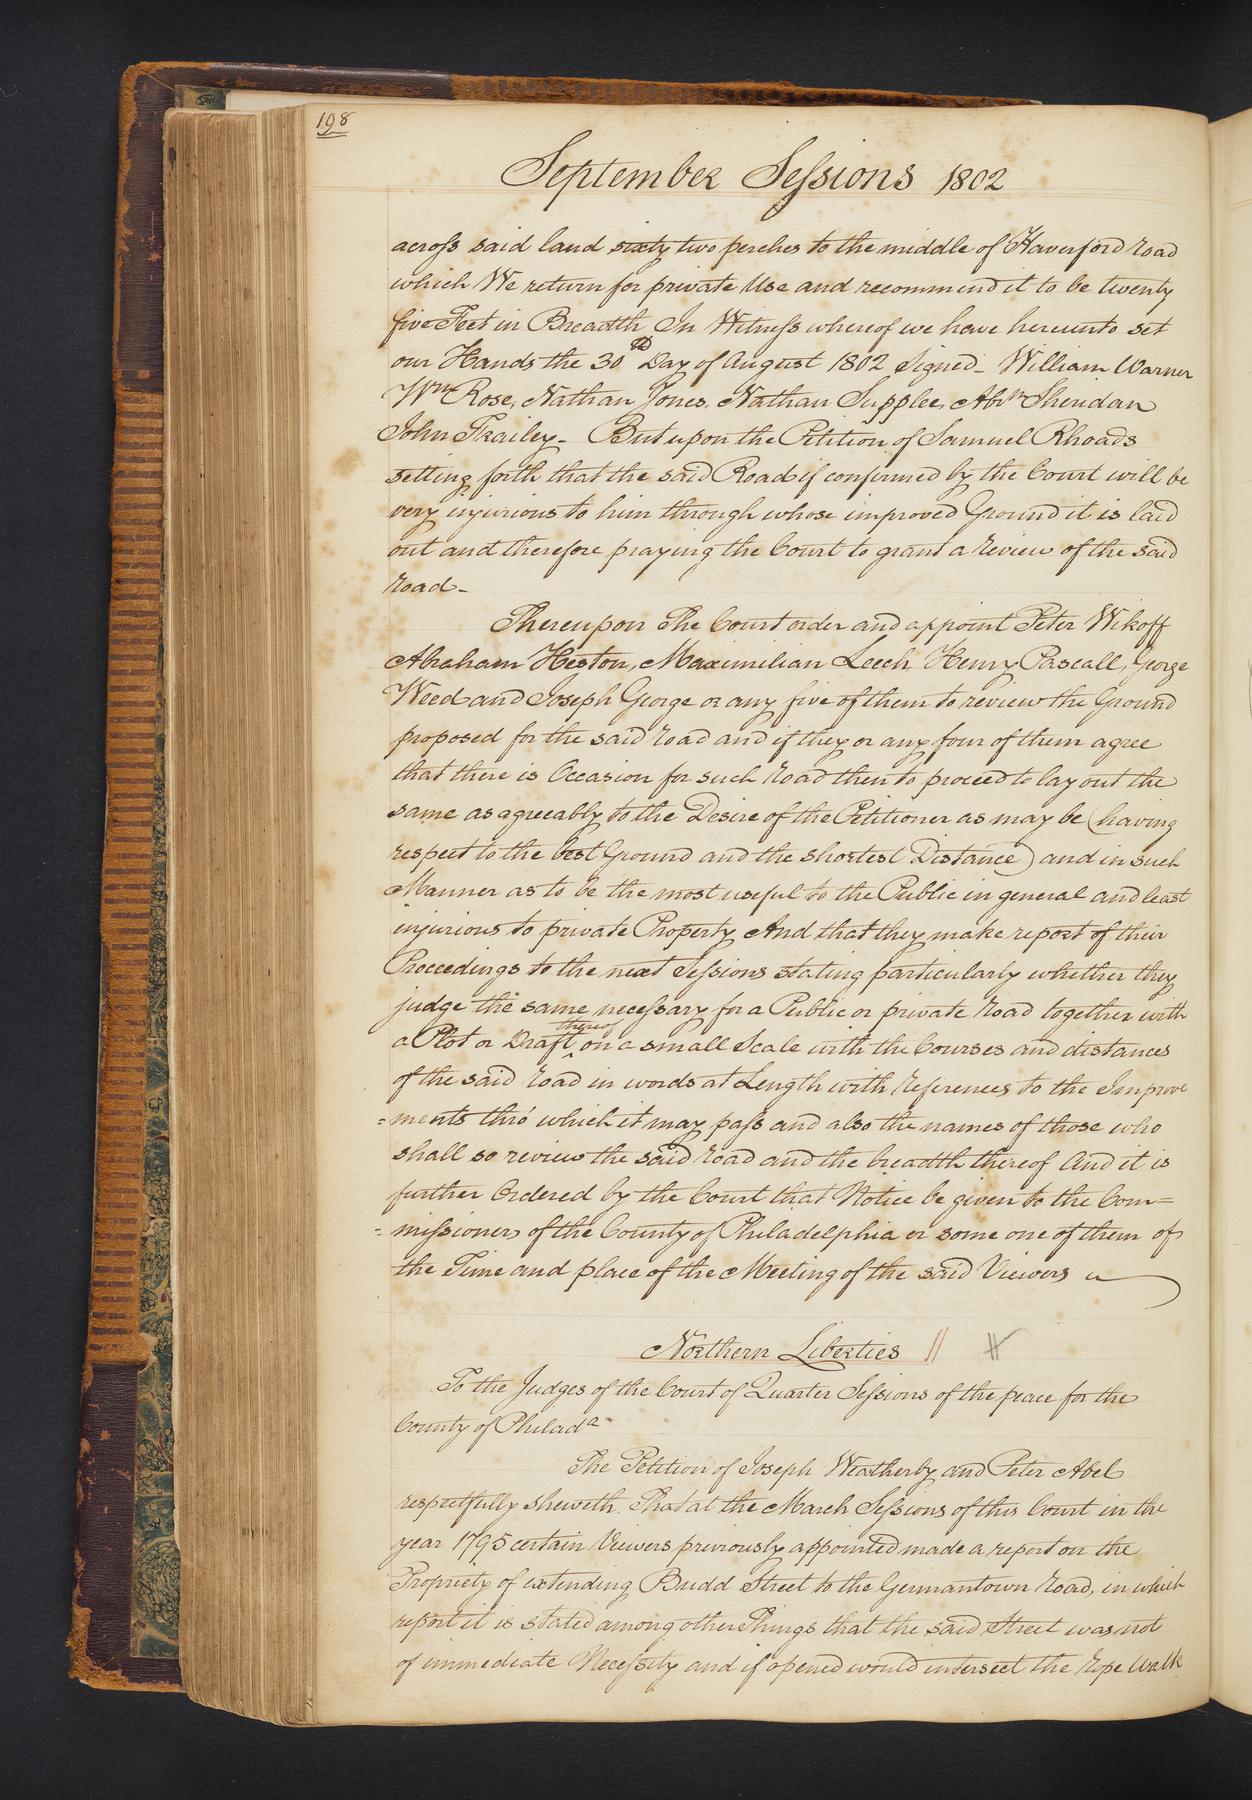 198
September Sessions 1802
across said land sixty two perches to the middle of Haverford road
which We return for private Use and recommend it to be twenty
five Feet in Breadth In Witness whereof we have hereunto set
our Hands the 30th Day of August 1802 Signed - William Warner
Wm Rose, Nathan Jones, Nathan Supplee, Abm Sheridan
John Frailey - But upon the Petition of Samuel Rhoads
setting forth that the said Road if confirmed by the Court will be
very injurious to him through whose improved Ground it is laid
out and therefore praying the Court to grant a review of the said
road -
Thereupon The Court order and appoint Peter Wikoff
Abraham Heston, Maximilian Leech Henry Pascall, George
Weed and Joseph George or any five of them to review the Ground
proposed for the said road and if they or any four of them agree
that there is Occasion for such road then to proceed to lay out the
same as agreeably to the Desire of the Petitioner as may be (having
respect to the best Ground and the shortest Distance) and in such
Manner as to be the most useful to the Public in general and least
injurious to private Property And that they make report of their
Proceedings to the next Sessions stating particularly whether they
judge the same necessary for a Public or private road together with
a Plot or Draft thereof on a small Scale with the Courses and distances
of the said road in words at Length with references to the Improve
=ments thro' which it may pass and also the names of those who
shall so review the said road and the breadth thereof And it is
further Ordered by the Court that Notice be given to the Com=
=missioners of the County of Philadelphia or some one of them of
the Time and place of the Meeting of the said Viewers
Northern Liberties ||
To the Judges of the Court of Quarter Sessions of the peace for the
County of Philada
The Petition of Joseph Weatherby and Peter Abel
respectfully sheweth. That at the March Sessions of this Court in the
year 1795 certain Viewers previously appointed made a report on the
Propriety of extending Budd Street to the Germantown road, in which
report it is stated among other Things that the said Street was not
of immediate Necessity and if opened would intersect the rope walk